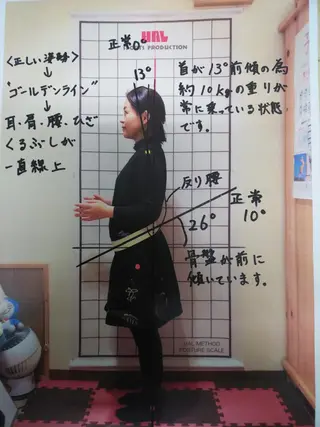 HAL
正常0°
TS PRODUCTION
13°
<正しい姿勢>
↓
"ゴールデンライン"
↓
耳・肩・腰・ひざ
くるぶしが
一直線上
首が13°前傾の為
約10kgの重りが
常に乗っている状態
です。
反り腰
正常
10°
26°
骨盤が前に
傾いています。
HAL METHOD
POSTURE SCALE